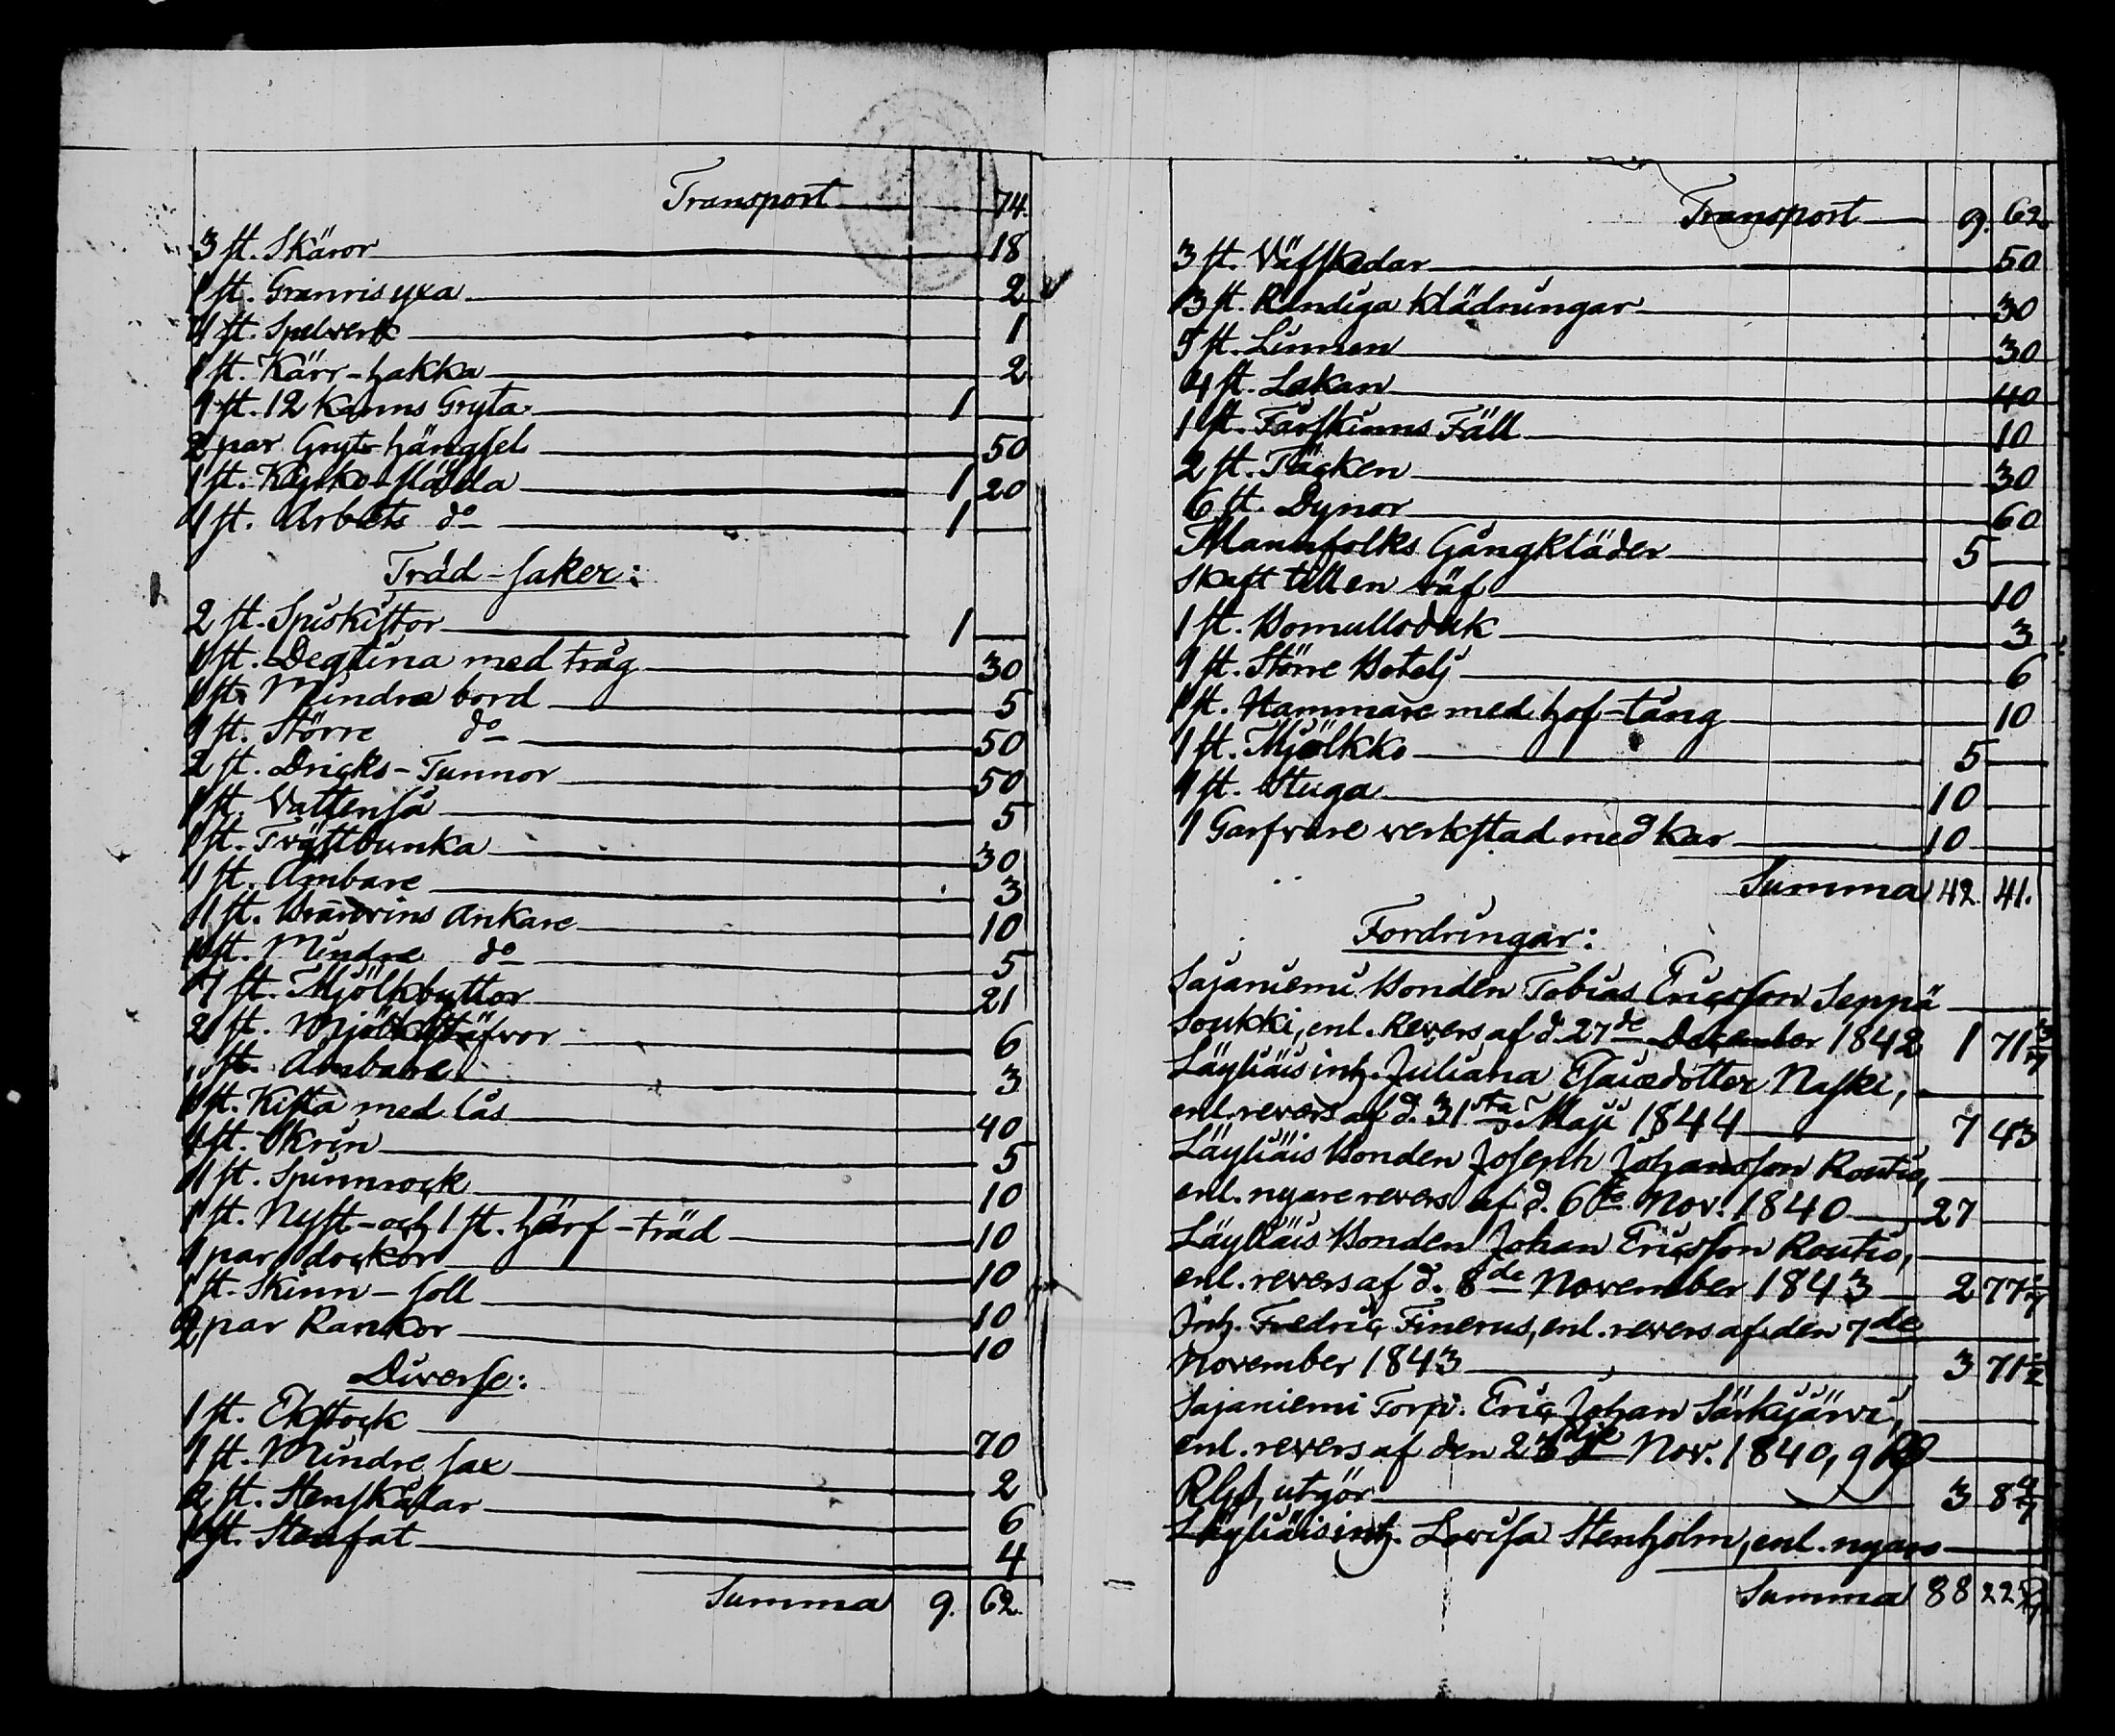 Transport 74.
3 st. Skäror 18
1 st. Granris yxa 2
1 st. Spelverk 1
1 st. Kärr-hakka 2
1 st. 12 Kanns Gryta 1
2 par Gryt-hängsel 50
1 st. Kyrko-släda 1 20
1 st. Arbets do 1
Träd-saker:
2 st. Spiskistor 1
1 st. Degtina med tråg 30
1 st. Mindre bord 5
1 st. Större do 50
2 st. Dricks-Tunnor 50
1 st. Vattenså 5
1 st. Tvättbunka 30
1 st. Ämbare 3
1 st. Bränvins Ankare 10
1 st. Mindre do 5
7 st. Mjölkbyttor 21
2 st. Mjölkstäfvor 6
1 st. Ämbare 3
1 st. Kista med lås 40
1 st. Skrin 5
1 st. Spinnrock 10
1 st. Nyst- och 1 st. härf-träd 10
1 par dockor 10
1 st. Skinn-soll 10
2 par Rankor 10
Diverse:
1 st. Ekstock 70
1 st. Mindre sax 2
2 st. Stenskålar 6
1 st. Stenfat 4
Summa 9. 62.
Transport 9. 62
3 st. Väfskedar 50
3 st. Randiga Klädningar 30
5 st. Linnen 30
4 st. Lakan 40
1 st. Fårskinns Fäll 10
2 st. Täcken 30
6 st. Dynor 60
Mannfolks Gångkläder 5
Skaft till en väf 10
1 st. Bomullsduk 3
1 st. Större Botelj 6
1 st. Hammare med hof-tång 10
1 st. Mjölkko 5
1 st. Stuga 10
1 Garfvare verkstad med kar 10
Summa 42. 41.
Fordringar:
Sajaniemi Bonden Tobias Ericsson Seppä
Soukki, enl. Revers af d. 27de December 1842 1 71
Läyliäis inh. Juliana Esaiedotter Naski,
enl. revers af d. 31sta Maji 1844 7 43
Läyliäis Bonden Joseph Johansson Routio,
enl. nyare revers af d. 6te Nov. 1840 27
Läyliäis Bonden Johan Ericsson Routio,
enl. revers af d. 8de November 1843 2 77
Inh. Fredric Finerus, enl. revers af den 7de
November 1843 3 71
Sajaniemi Torp. Eric Johan Särkijärvi,
enl. revers af den 23dje Nov. 1840, 9 Rd
RGs, utgör 3 8
Läyliäis inh. Lovisa Stenholm, enl. nyare
Summa 88 22